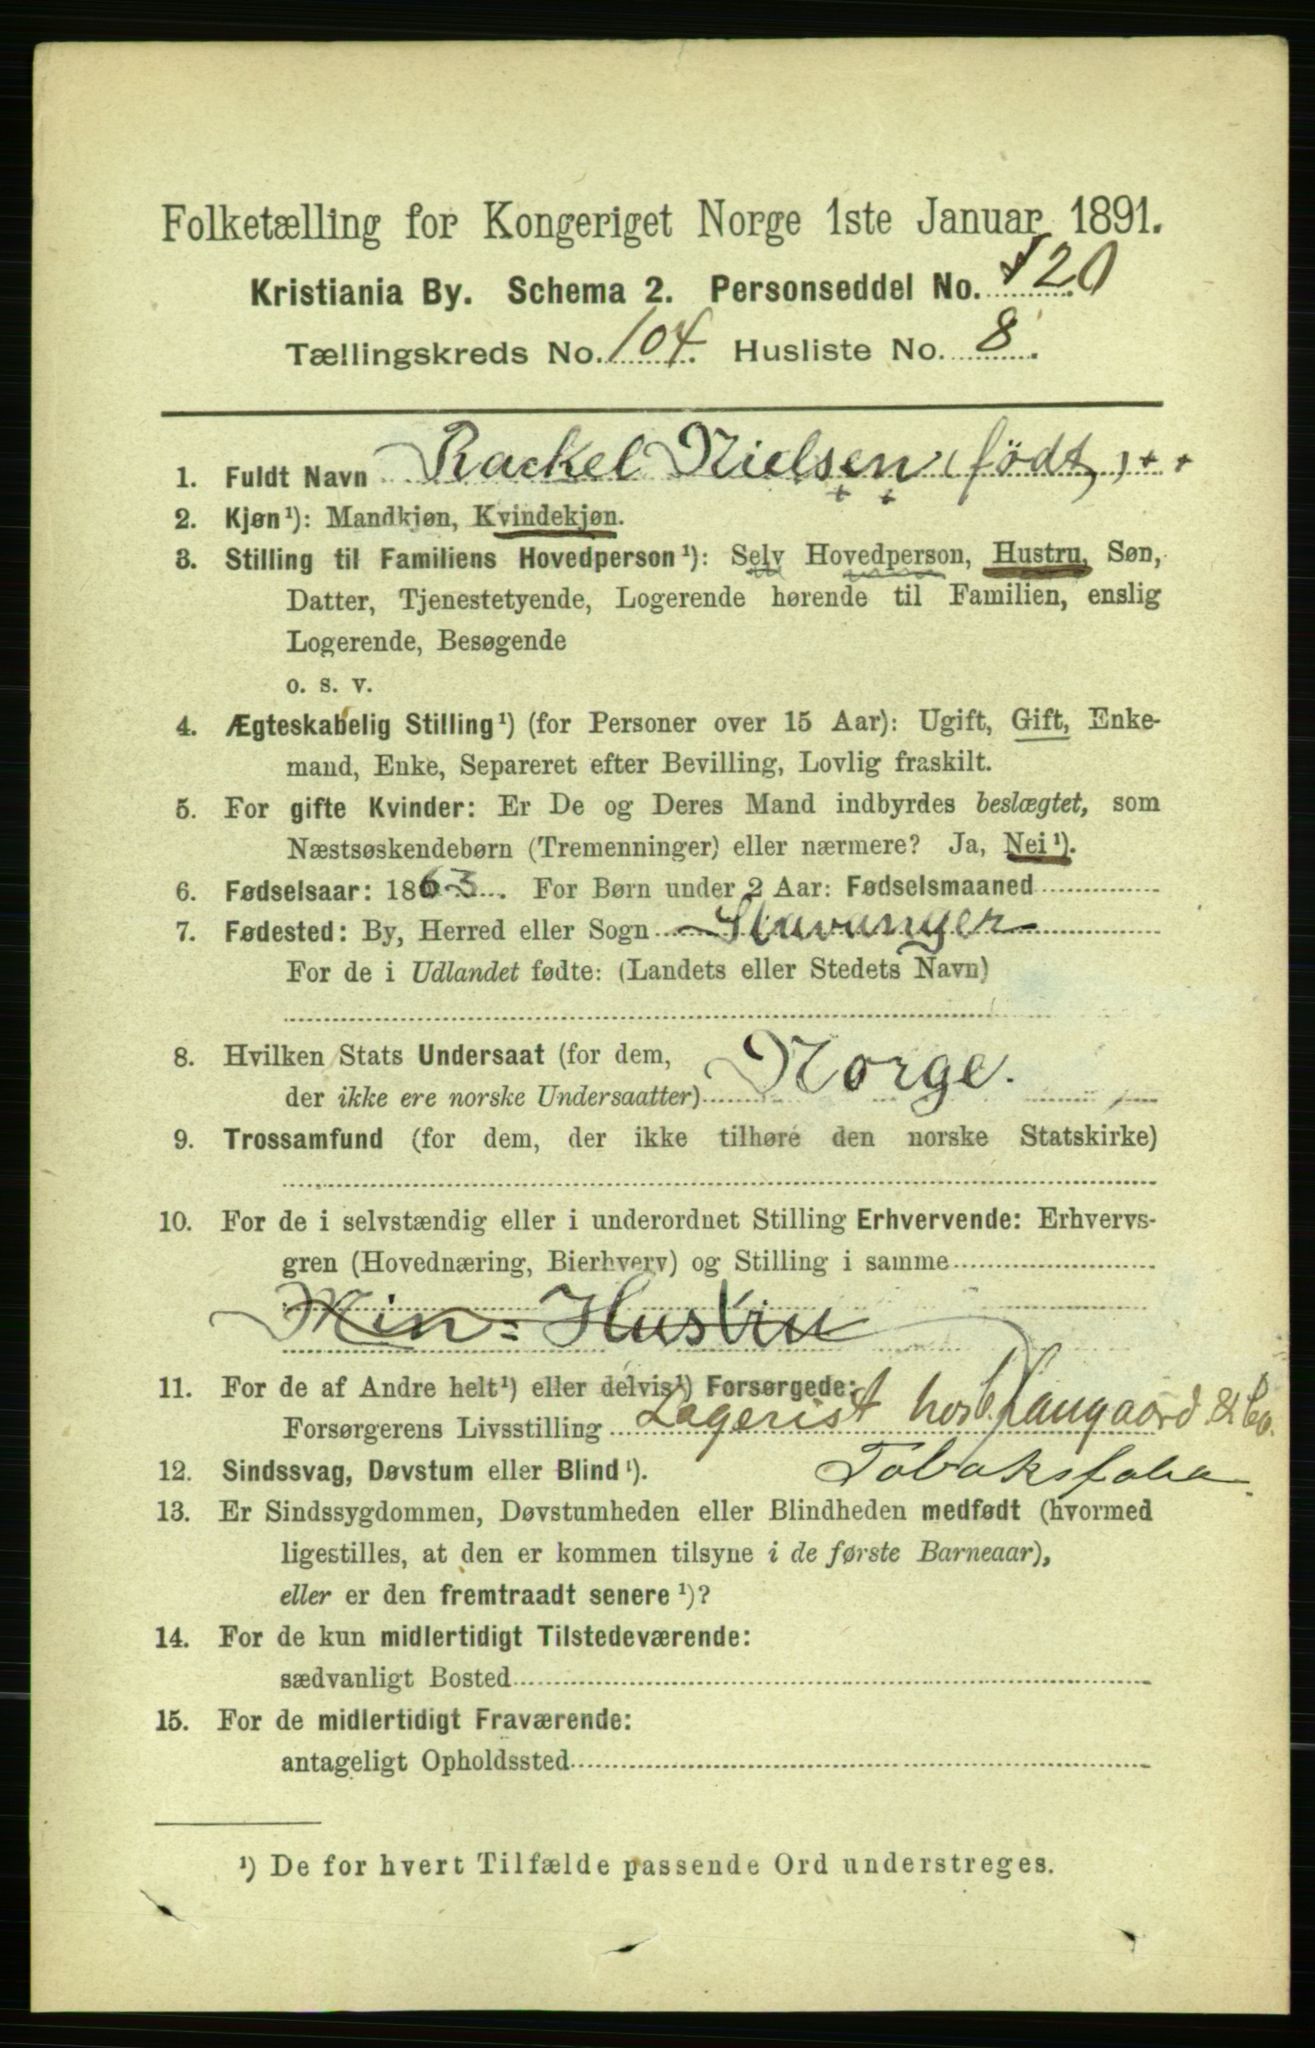 Folketælling for Kongeriget Norge 1ste Januar 1891.
Kristiania By. Schema 2. Personseddel No. 120
Tællingskreds No. 104. Husliste No. 8.
1. Fuldt Navn Rackel Nielsen (født) + +
+ +
2. Kjøn¹): Mandkjøn, Kvindekjøn.
3. Stilling til Familiens Hovedperson¹): Selv Hovedperson, Hustru, Søn,
Datter, Tjenestetyende, Logerende hørende til Familien, enslig
Logerende, Besøgende
o. s. v.
4. Ægteskabelig Stilling¹) (for Personer over 15 Aar): Ugift, Gift, Enke-
mand, Enke, Separeret efter Bevilling, Lovlig fraskilt.
5. For gifte Kvinder: Er De og Deres Mand indbyrdes beslægtet, som
Næstsøskendebørn (Tremenninger) eller nærmere? Ja, Nei¹).
6. Fødselsaar: 1863. For Børn under 2 Aar: Fødselsmaaned
7. Fødested: By, Herred eller Sogn Stavanger
For de i Udlandet fødte: (Landets eller Stedets Navn)
8. Hvilken Stats Undersaat (for dem,
der ikke ere norske Undersaatter) Norge.
9. Trossamfund (for dem, der ikke tilhøre den norske Statskirke)
10. For de i selvstændig eller i underordnet Stilling Erhvervende: Erhvervs-
gren (Hovednæring, Bierhverv) og Stilling i samme
Min = Hustru
11. For de af Andre helt¹) eller delvis¹) Forsørgede:
Forsørgerens Livsstilling Lagerist hos Langaard & Co.
12. Sindssvag, Døvstum eller Blind¹). Tobaksfabr.
13. Er Sindssygdommen, Døvstumheden eller Blindheden medfødt (hvormed
ligestilles, at den er kommen tilsyne i de første Barneaar),
eller er den fremtraadt senere¹)?
14. For de kun midlertidigt Tilstedeværende:
sædvanligt Bosted
15. For de midlertidigt Fraværende:
antageligt Opholdssted
¹) De for hvert Tilfælde passende Ord understreges.